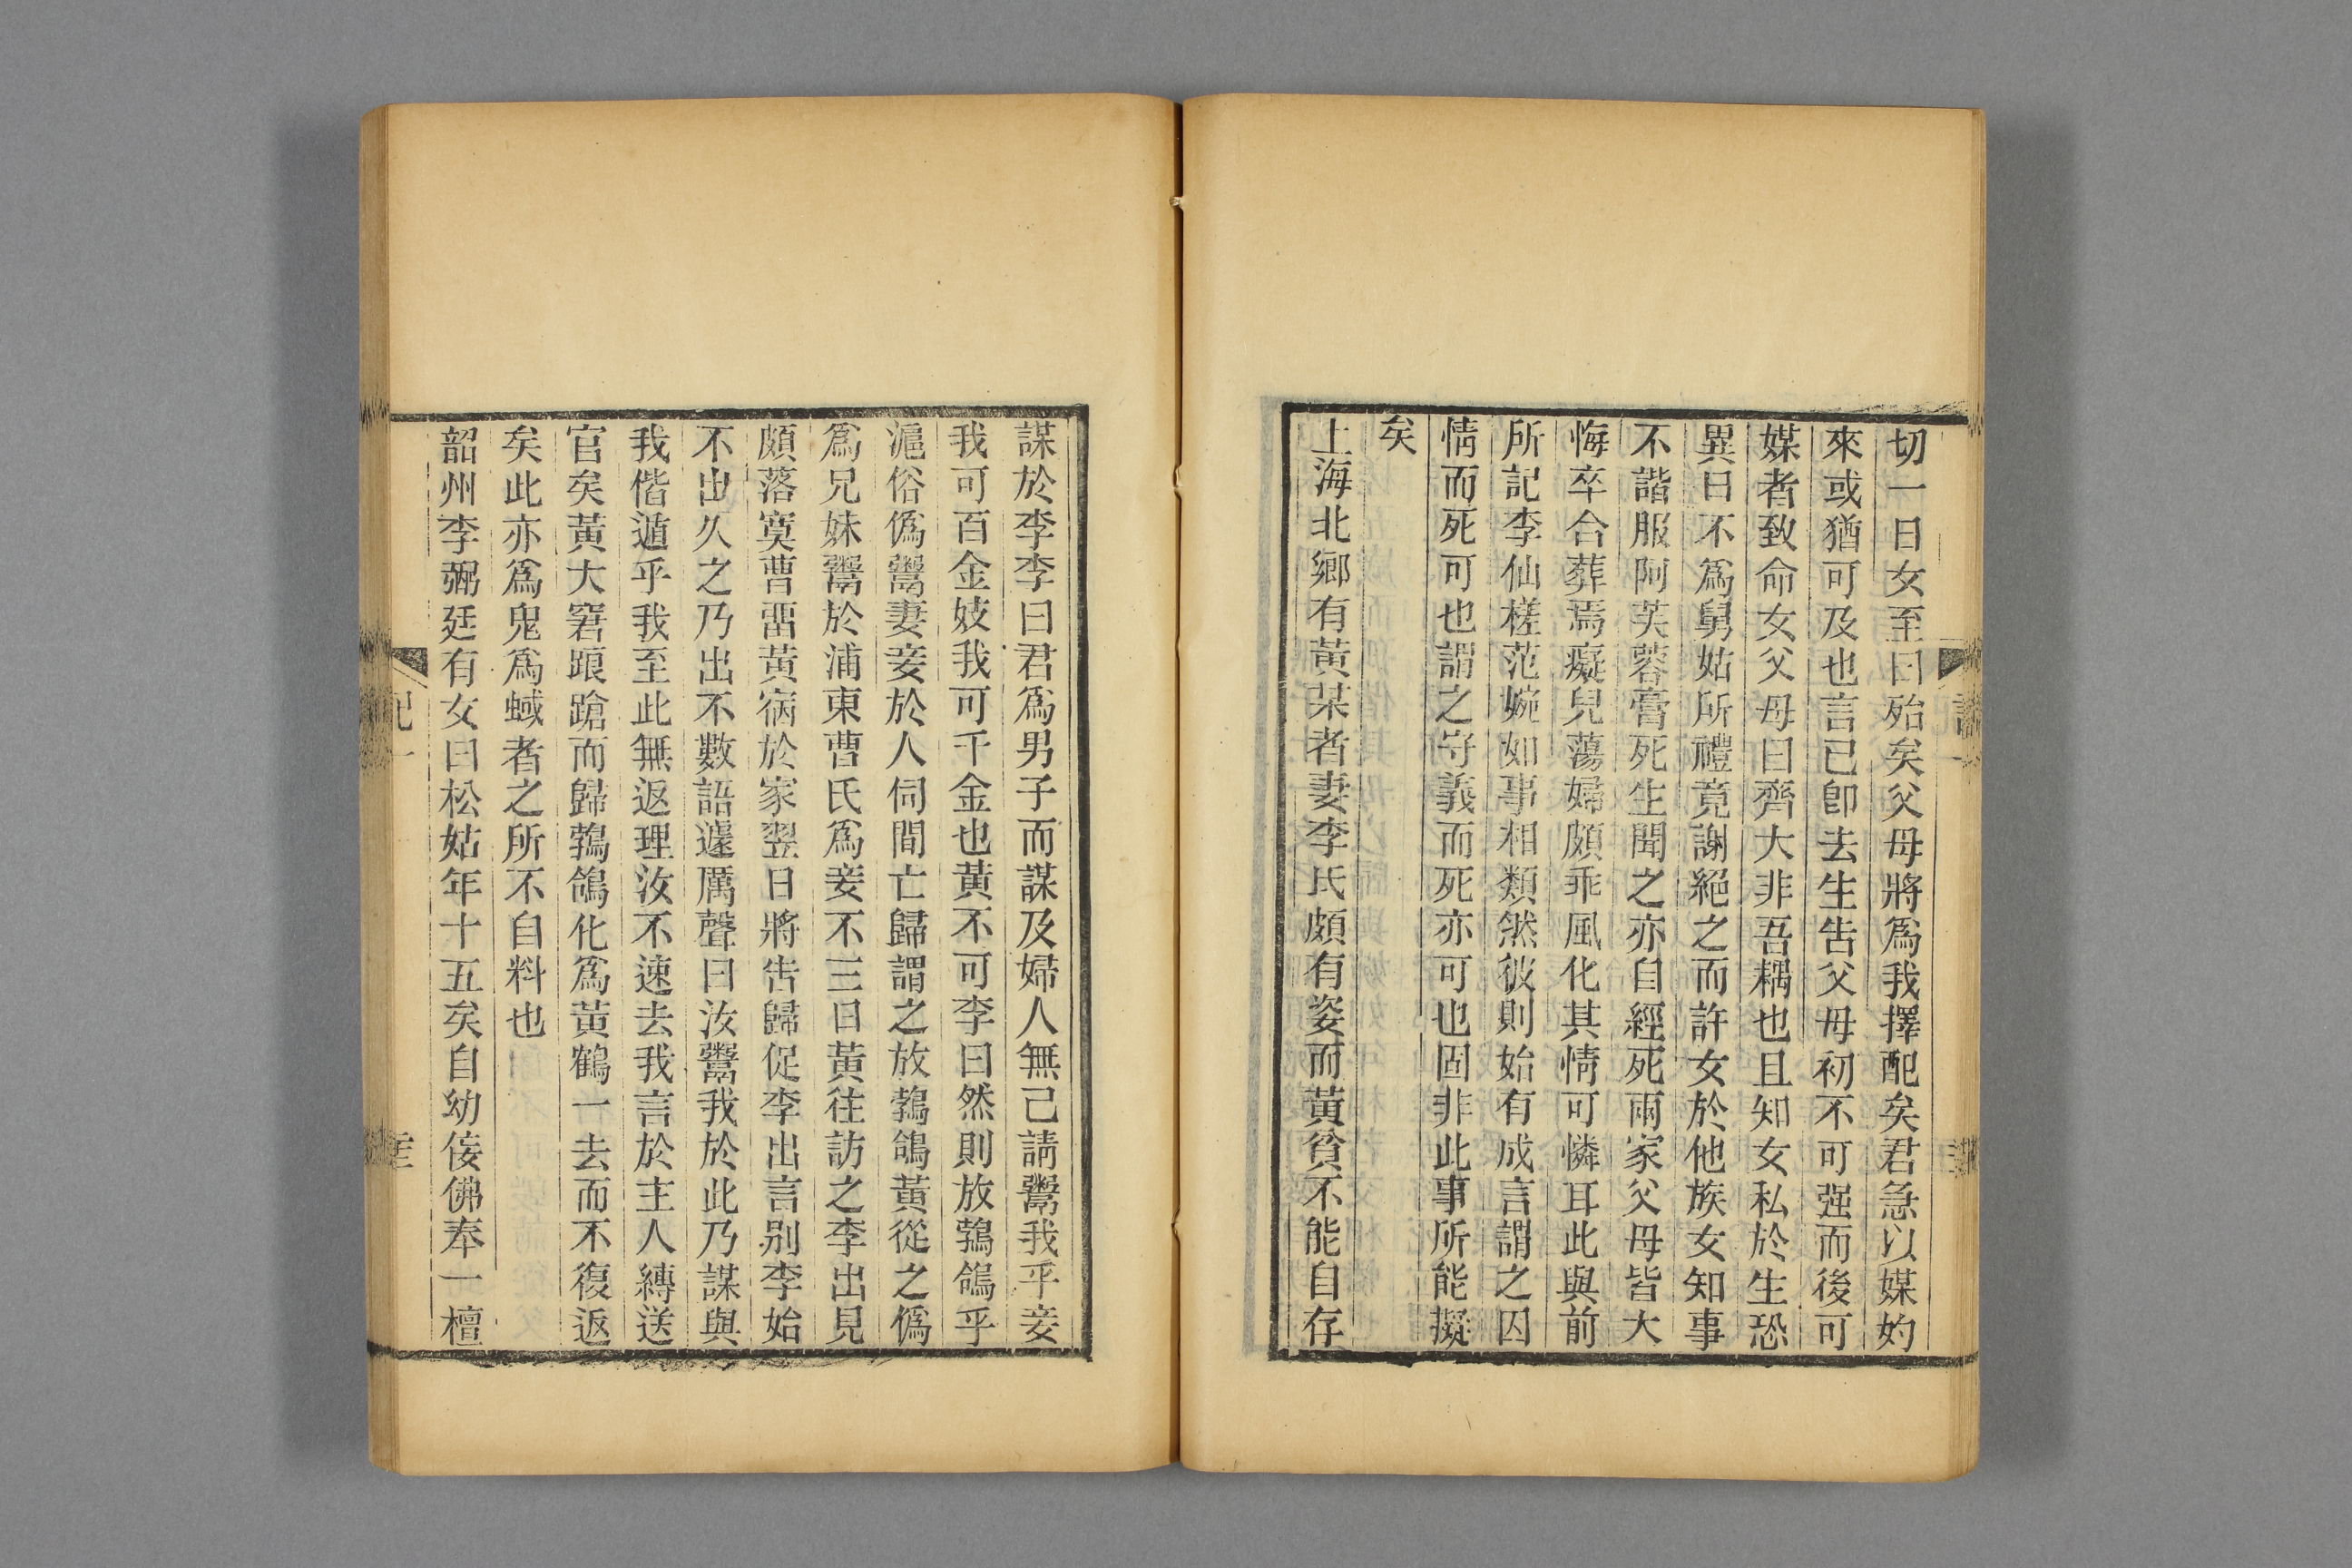 切一日女至曰殆矣父母將爲我擇配矣君急以媒妁
來或猶可及也言已卽去生告父母初不可强而後可
媒者致命女父母曰齊大非吾耦也且知女私於生恐
異日不爲舅姑所禮竟謝絕之而許女於他族女知事
不諧服阿芙蓉膏死生聞之亦自經死兩家父母皆大
悔卒合葬焉癡兒蕩婦頗乖風化其情可憐耳此與前
所記李仙槎范婉如事相類然彼則始有成言謂之因
情而死可也謂之守義而死亦可也固非此事所能擬
矣
上海北鄉有黃某者妻李氏頗有姿而黃貧不能自存
謀於李李曰君爲男子而謀及婦人無已請鬻我乎妾
我可百金妓我可千金也黃不可李曰然則放鵓鴿乎
滬俗僞鬻妻妾於人伺間亡歸謂之放鵓鴿黃從之僞
爲兄妹鬻於浦東曹氏爲妾不三日黃往訪之李出見
頗落寞曹畱黃宿於家翌日將告歸促李出言别李始
不出久之乃出不數語遽厲聲曰汝鬻我於此乃謀與
我偕遁乎我至此無返理汝不速去我言於主人縛送
官矣黃大窘踉蹌而歸鵓鴿化爲黃鶴一去而不復返
矣此亦爲鬼爲蜮者之所不自料也
韶州李弼廷有女曰松姑年十五矣自幼佞佛奉一檀
記一